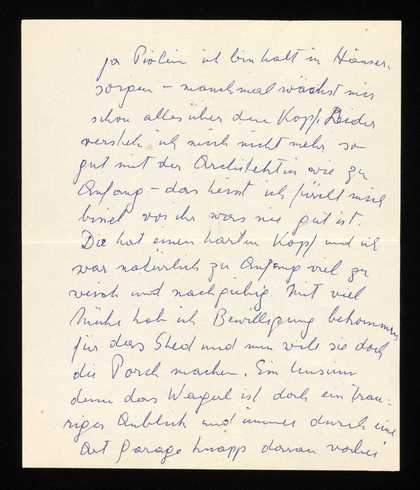 ja Piolin ich bin halt in Häuser-
sorgen – manchmal wächst mir
schon alles über den Kopf. Leider
versteh ich mich nicht mehr so
gut mit der Architektin wie zu
Anfang – das heisst ich fürcht mich
bissel vor ihr was nie gut ist.
Die hat einen harten Kopf und ich
war natürlich zu Anfang viel zu
weich und nachgiebig. Mit viel
Mühe hab ich Bewilligung bekommen
für das Shed und nun will sie doch
die Porch machen. Ein Unsinn
denn das Wagerl ist doch ein trau-
riger Anblick und immer durch eine
Art Garage knapp daran vorbei